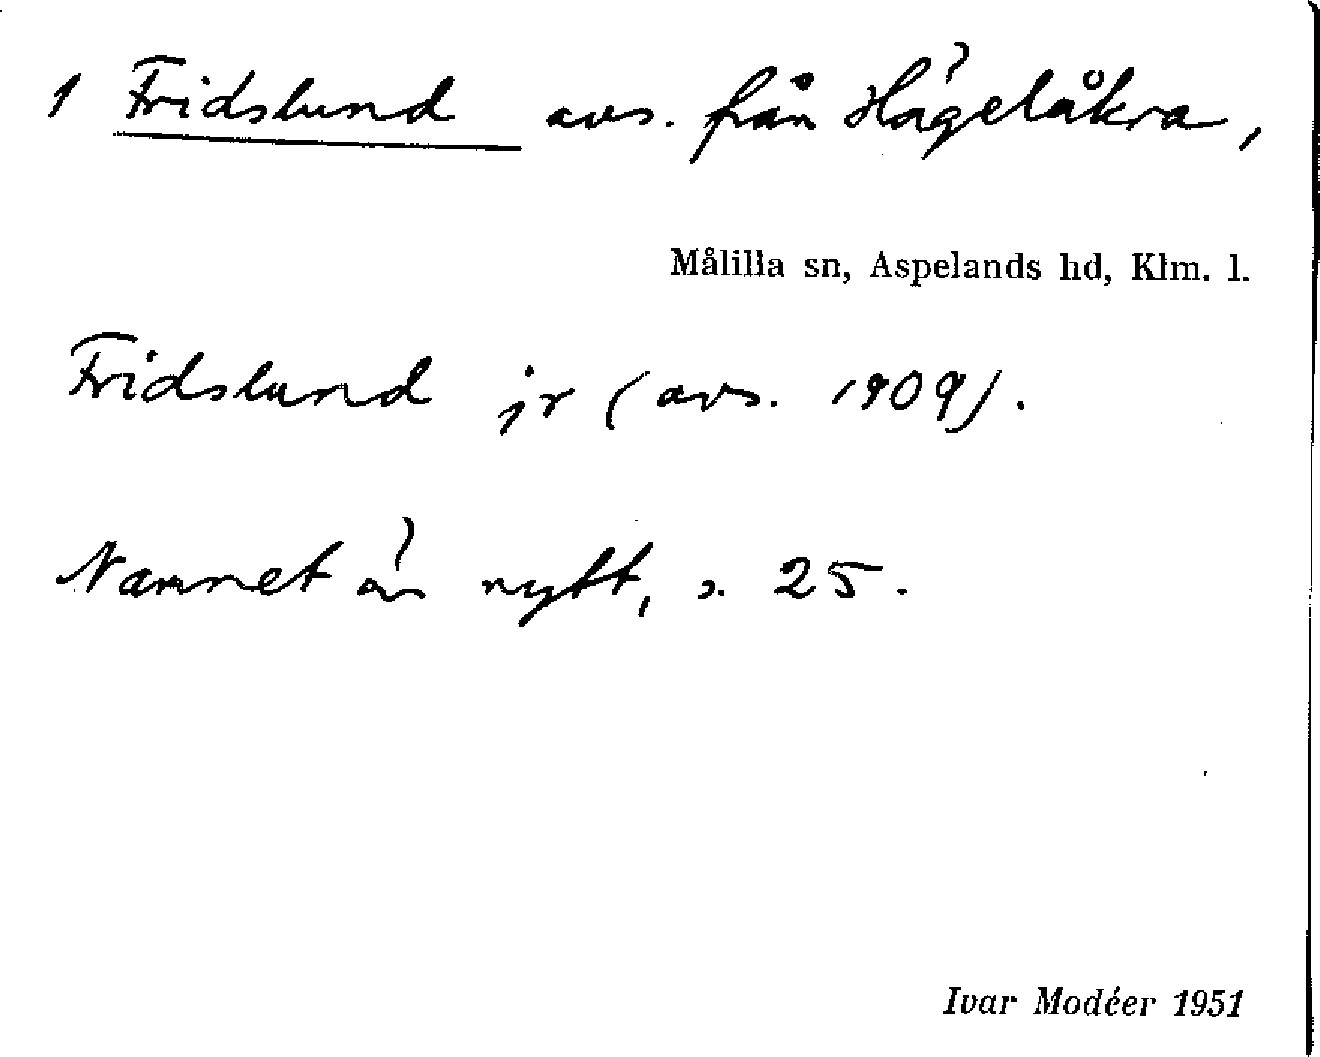 1 Fridslund avs. från Hägelåkra,
Målilla sn, Aspelands hd, Klm. l.
Fridslund jr (avs. 1909).
Namnet är nytt, s. 25.
Ivar Modéer 1951